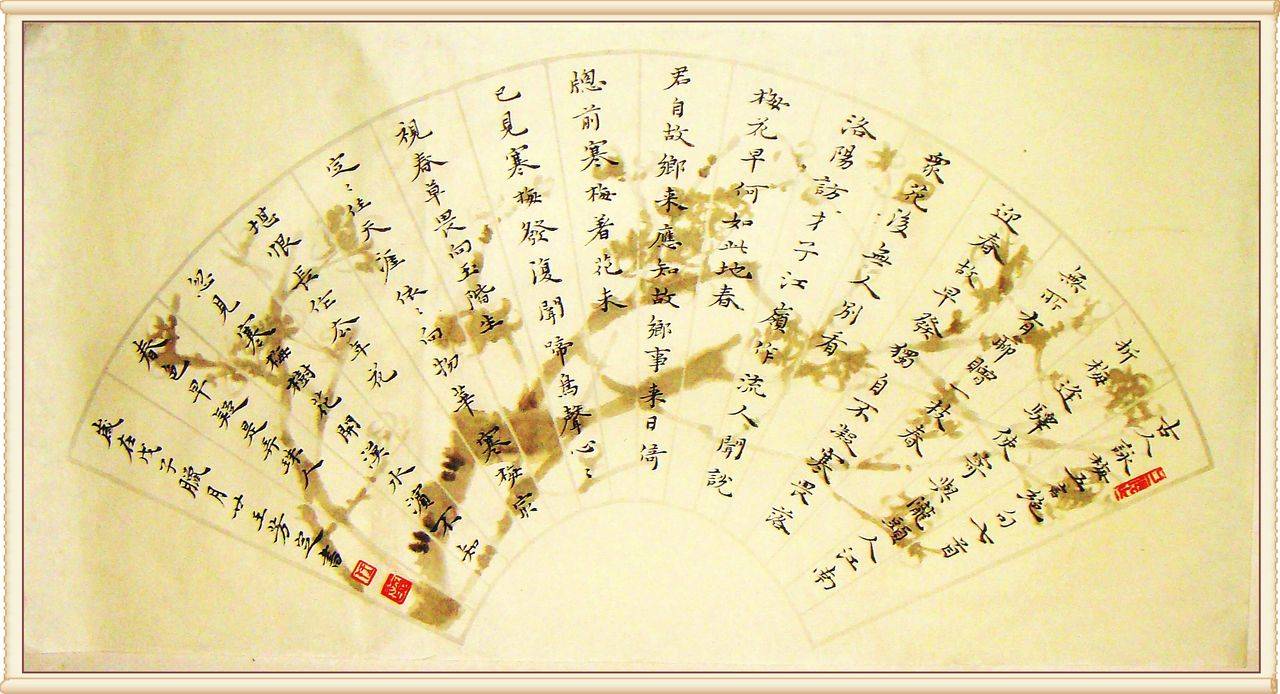 古人詠梅五言絕句七首
折梅逢驛使寄與隴頭人江南
無所有聊贈一枝春
迎春故早發獨自不疑寒畏落
衆花後無人別看
洛陽訪才子江嶺作流人聞說
梅花早何如此地春
君自故鄉来應知故鄉事来日倚
牕前寒梅著花未
已見寒梅發復聞啼鳥聲心〻
視春草畏向玉階生
定〻住天涯依〻向物華寒梅冣
堪恨長作去年花
忽見寒梅樹花開漢水濱不知
春色早疑是弄珠人
歲在戊子臘月廿五芳書